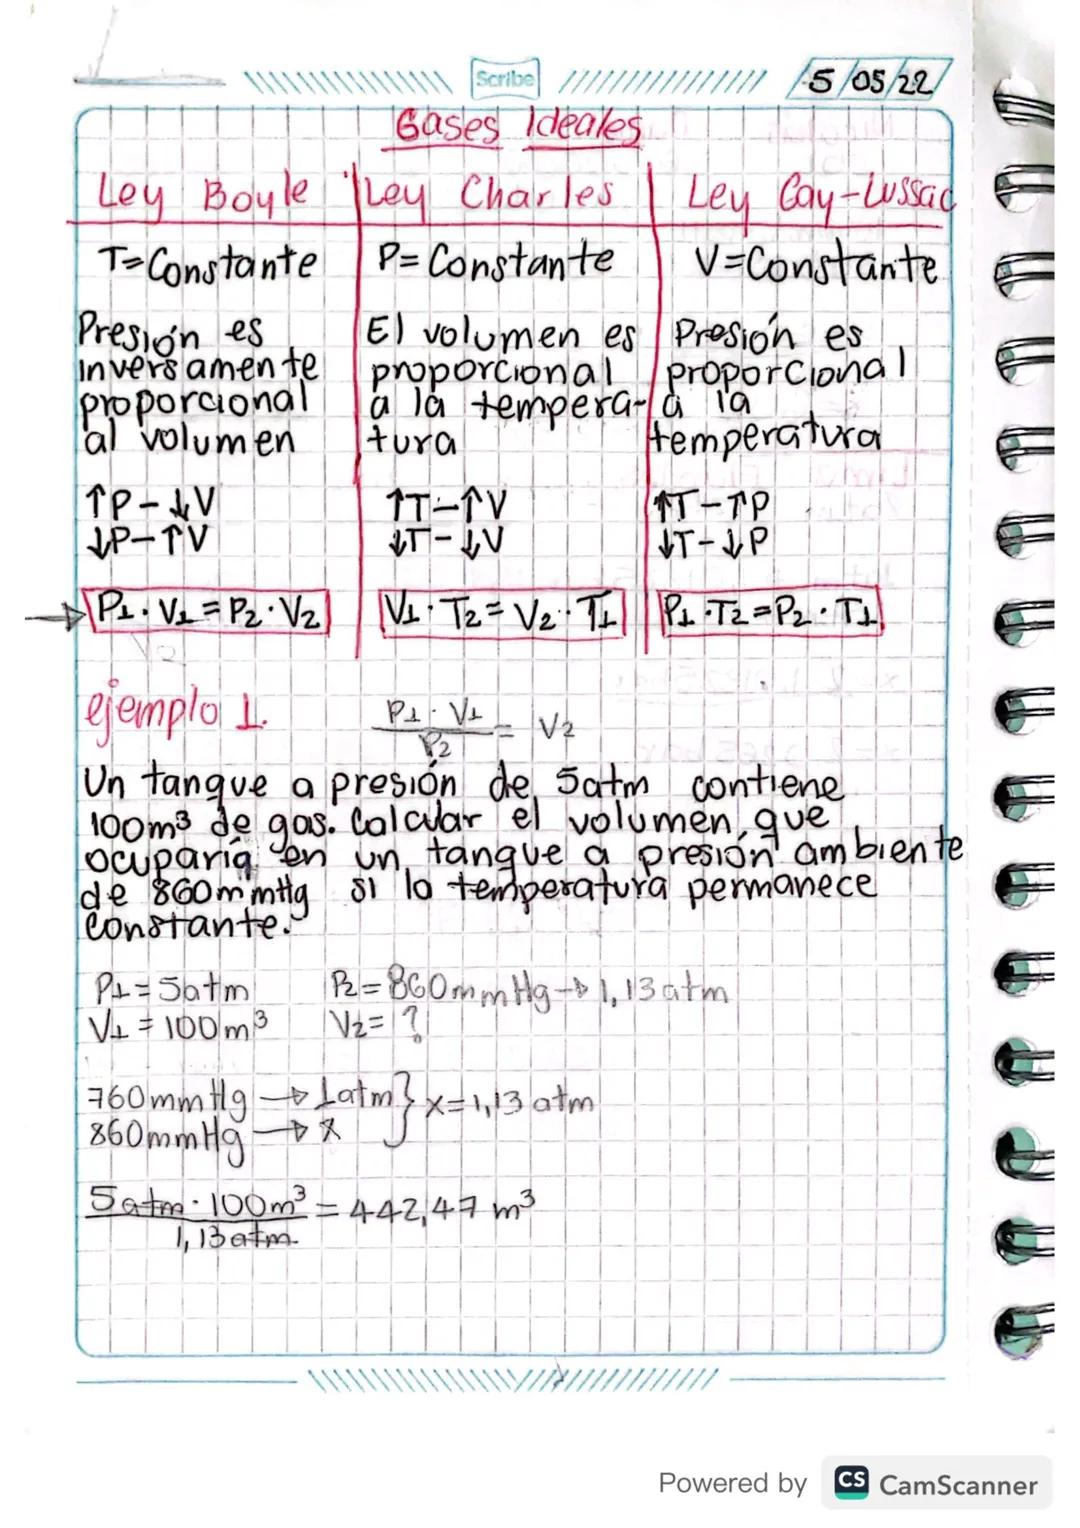 Scribe
5/05/22
Gases Ideales
Ley Boyle
Ley Charles
Ley Gay-Lussac
T=Constante
P=Constante
V=Constante
Presión es
inversamente
proporcional
al volumen
El volumen es
proporcional
a la tempera-
tura
Presión es
proporcional
a la
temperatura
↑P-↓V
↓P-↑V
↑T-↑V
↓T-↓V
↑T-↑P
↓T-↓P
→ P1·V1=P2·V2
V1·T2=V2·T1
P1·T2=P2·T1
ejemplo 1.
P1·V1/P2 = V2
Un tanque a presión de 5atm contiene
100m³ de gas. Calcular el volumen que
ocuparía en un tanque a presión ambiente
de 860mmHg si la temperatura permanece
constante.
P1=5atm
P2=860mmHg→1,13atm
V1=100m³
V2=?
760mmHg → 1atm } x=1,13 atm
860mmHg → x
5atm·100m³/1,13atm = 442,47 m³
Powered by CS CamScanner